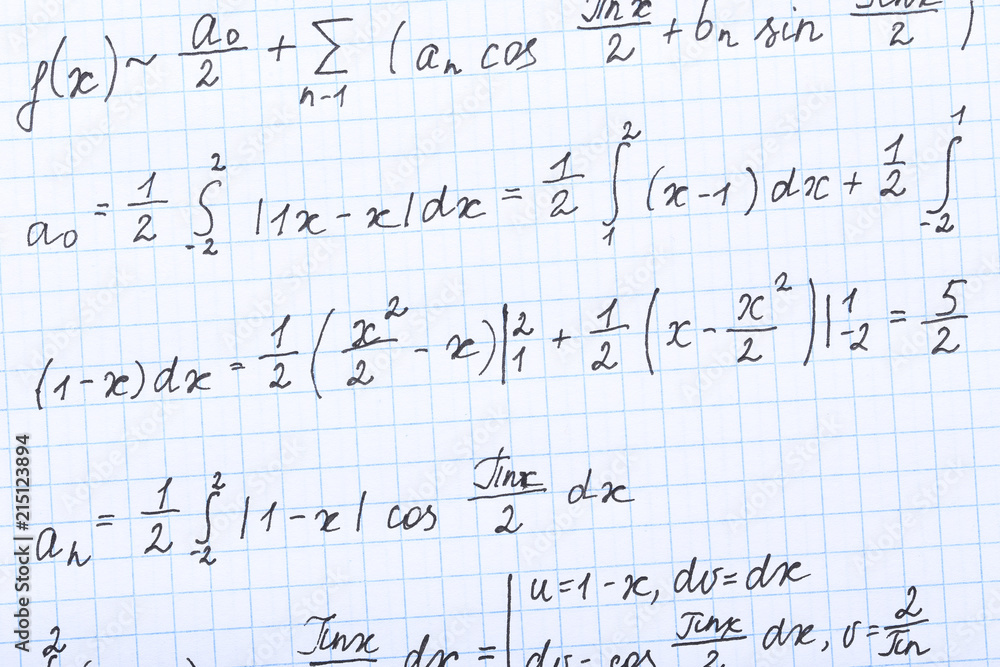 f(x) ~ a₀/2 + ∑ n-1 (aₙ cos πnx/2 + bₙ sin πnx/2)
a₀ = 1/2 ∫₋₂² |1x - x|dx = 1/2 ∫₁² (x-1)dx + 1/2 ∫₋₂¹
(1-x)dx = 1/2 (x²/2 - x)|₁² + 1/2 (x - x²/2)|₋₂¹ = 5/2
aₙ = 1/2 ∫₋₂² |1-x| cos πnx/2 dx
u=1-x, dv=dx
πnx/2 dx = dv- cos πnx/2 dx, v=2/πn
Adobe Stock | #215123894